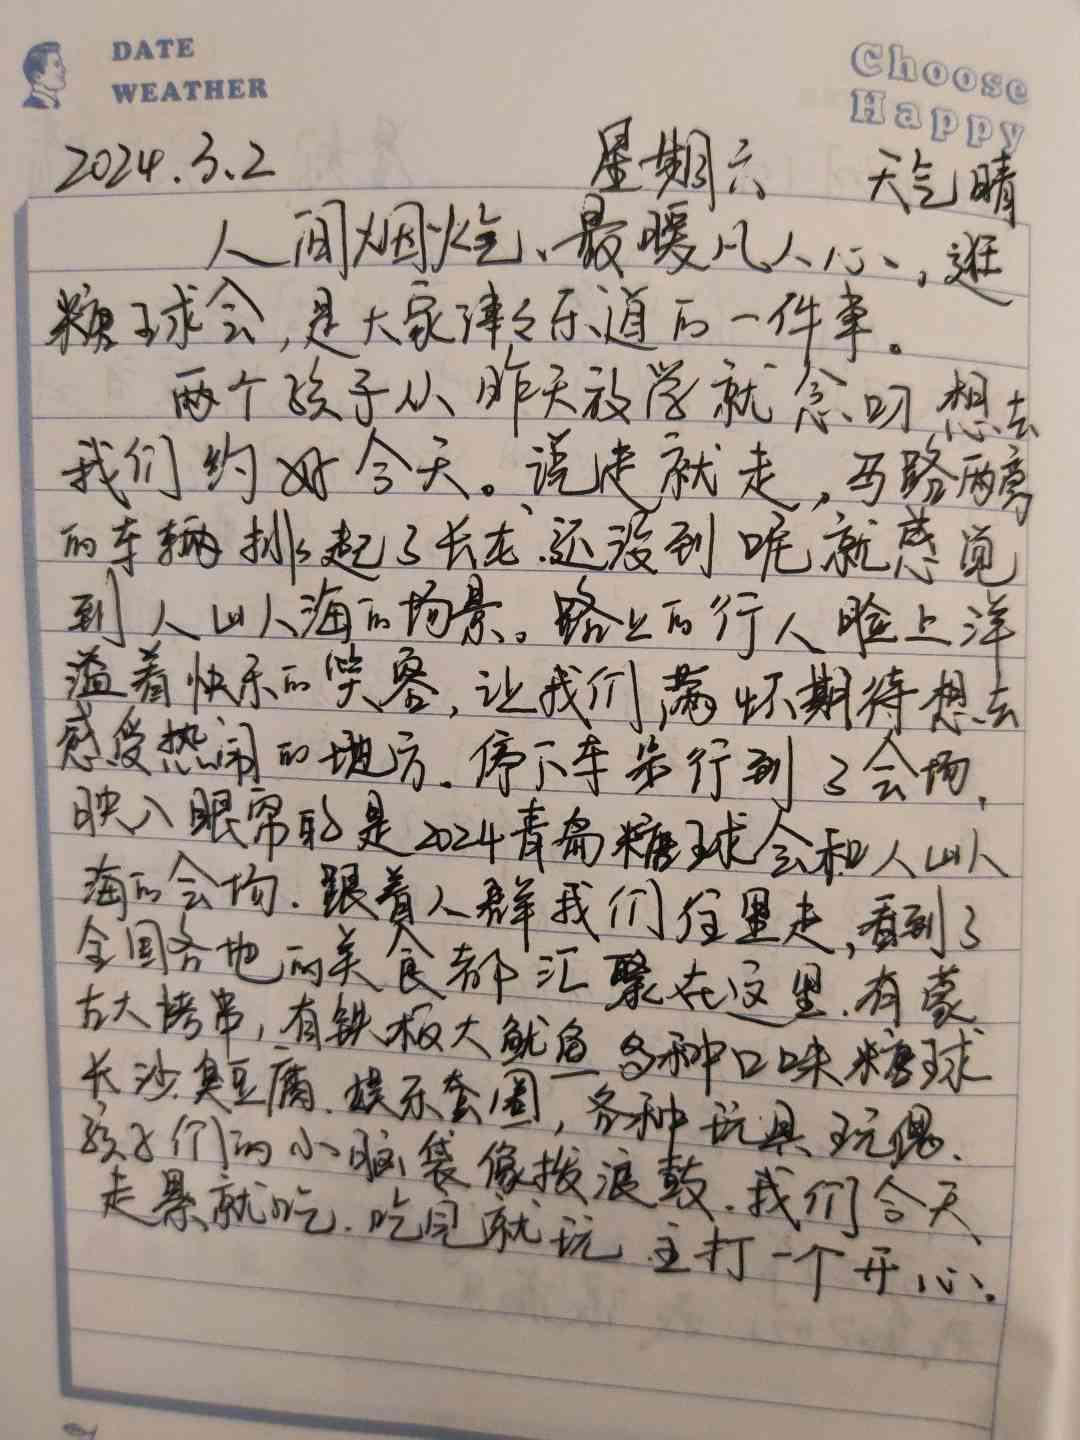 DATE
WEATHER
Choose
Happy
2024.3.2 星期六 天气晴
人间烟火气、最暖凡人心,逛
糖球会,是大家津々乐道的一件事。
两个孩子从昨天放学就念叨想去
我们约好今天。说走就走,马路两旁
的车辆排起了长龙、还没到呢就感觉
到人山人海的场景。路上的行人脸上洋
溢着快乐的笑容,让我们满怀期待想去
感受热闹的地方.停下车步行到了会场,
映入眼帘的是2024青岛糖球会和人山人
海的会场.跟着人群我们往里走,看到了
全国各地的美食都汇聚在这里.有蒙
古大烤串,有铁板大鱿鱼 各种口味糖球
长沙臭豆腐.娱乐套圈,各种玩具玩偶.
孩子们的小脑袋像拨浪鼓.我们今天
走累就吃.吃完就玩 主打一个开心.